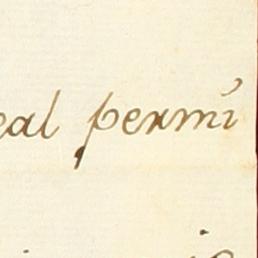 eal permi